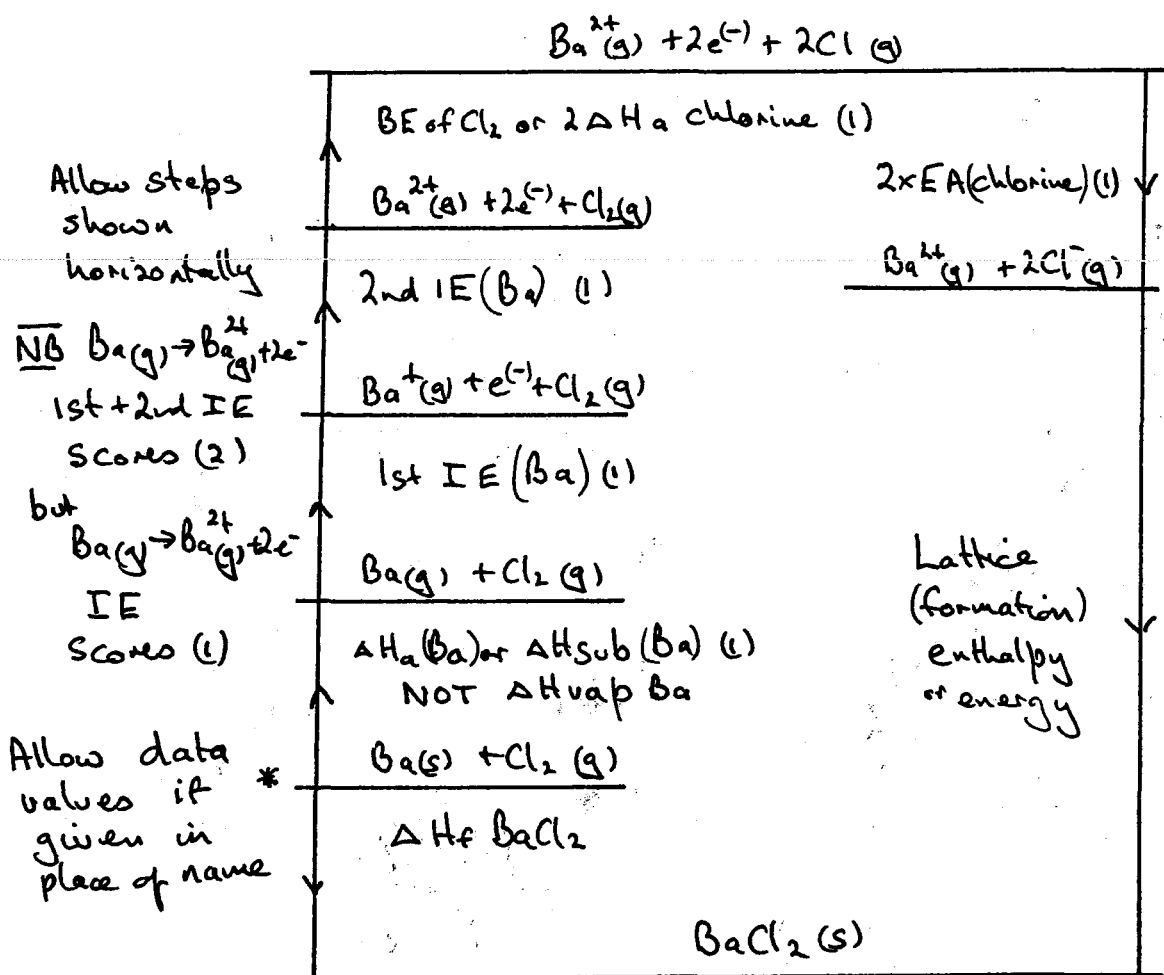 Ba²⁺(g) + 2e⁽⁻⁾ + 2Cl (g)
BE of Cl₂ or 2ΔHa chlorine (1)
2xEA(chlorine)(1)
Ba²⁺(g) + 2e⁽⁻⁾ + Cl₂(g)
Ba²⁺(g) + 2Cl⁻(g)
2nd IE(Ba) (1)
Ba⁺(g) + e⁽⁻⁾ + Cl₂(g)
1st IE(Ba) (1)
Ba(g) + Cl₂(g)
ΔHa(Ba) or ΔHsub(Ba) (1)
NOT ΔHvap Ba
Ba(s) + Cl₂(g)
ΔHf BaCl₂
BaCl₂(s)
Lattice
(formation)
enthalpy
or energy
Allow steps
shown
horizontally
NB Ba(g)→Ba²⁺(g)+2e⁻
1st+2nd IE
Scores (2)
but
Ba(g)→Ba²⁺(g)+2e⁻
IE
Scores (1)
Allow data
values if *
given in
place of name